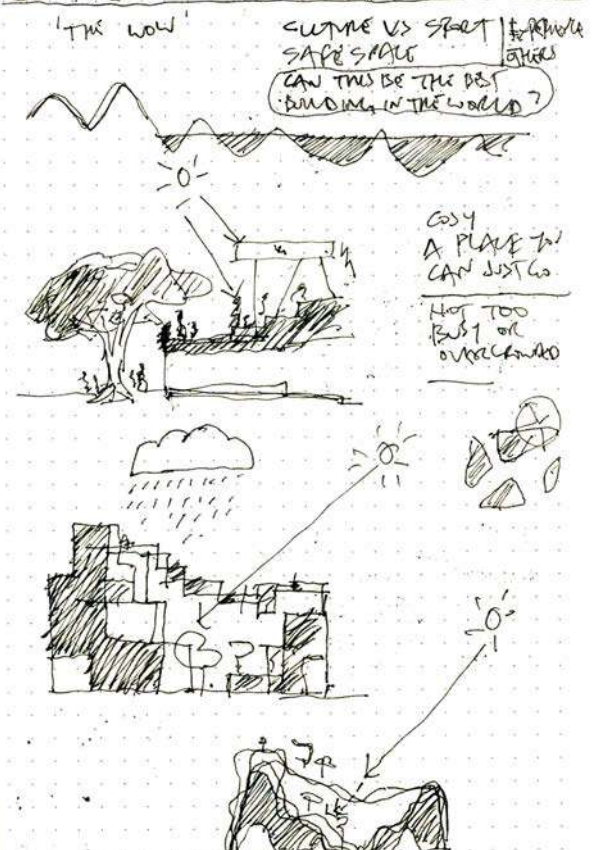 'THE WOW'
CULTURE VS SPORT
SAFE SPACE
OTHERS
CAN THIS BE THE BEST
BUILDING IN THE WORLD?
COSY
A PLACE YOU
CAN JUST GO
NOT TOO
BUSY OR
OVERCROWDED